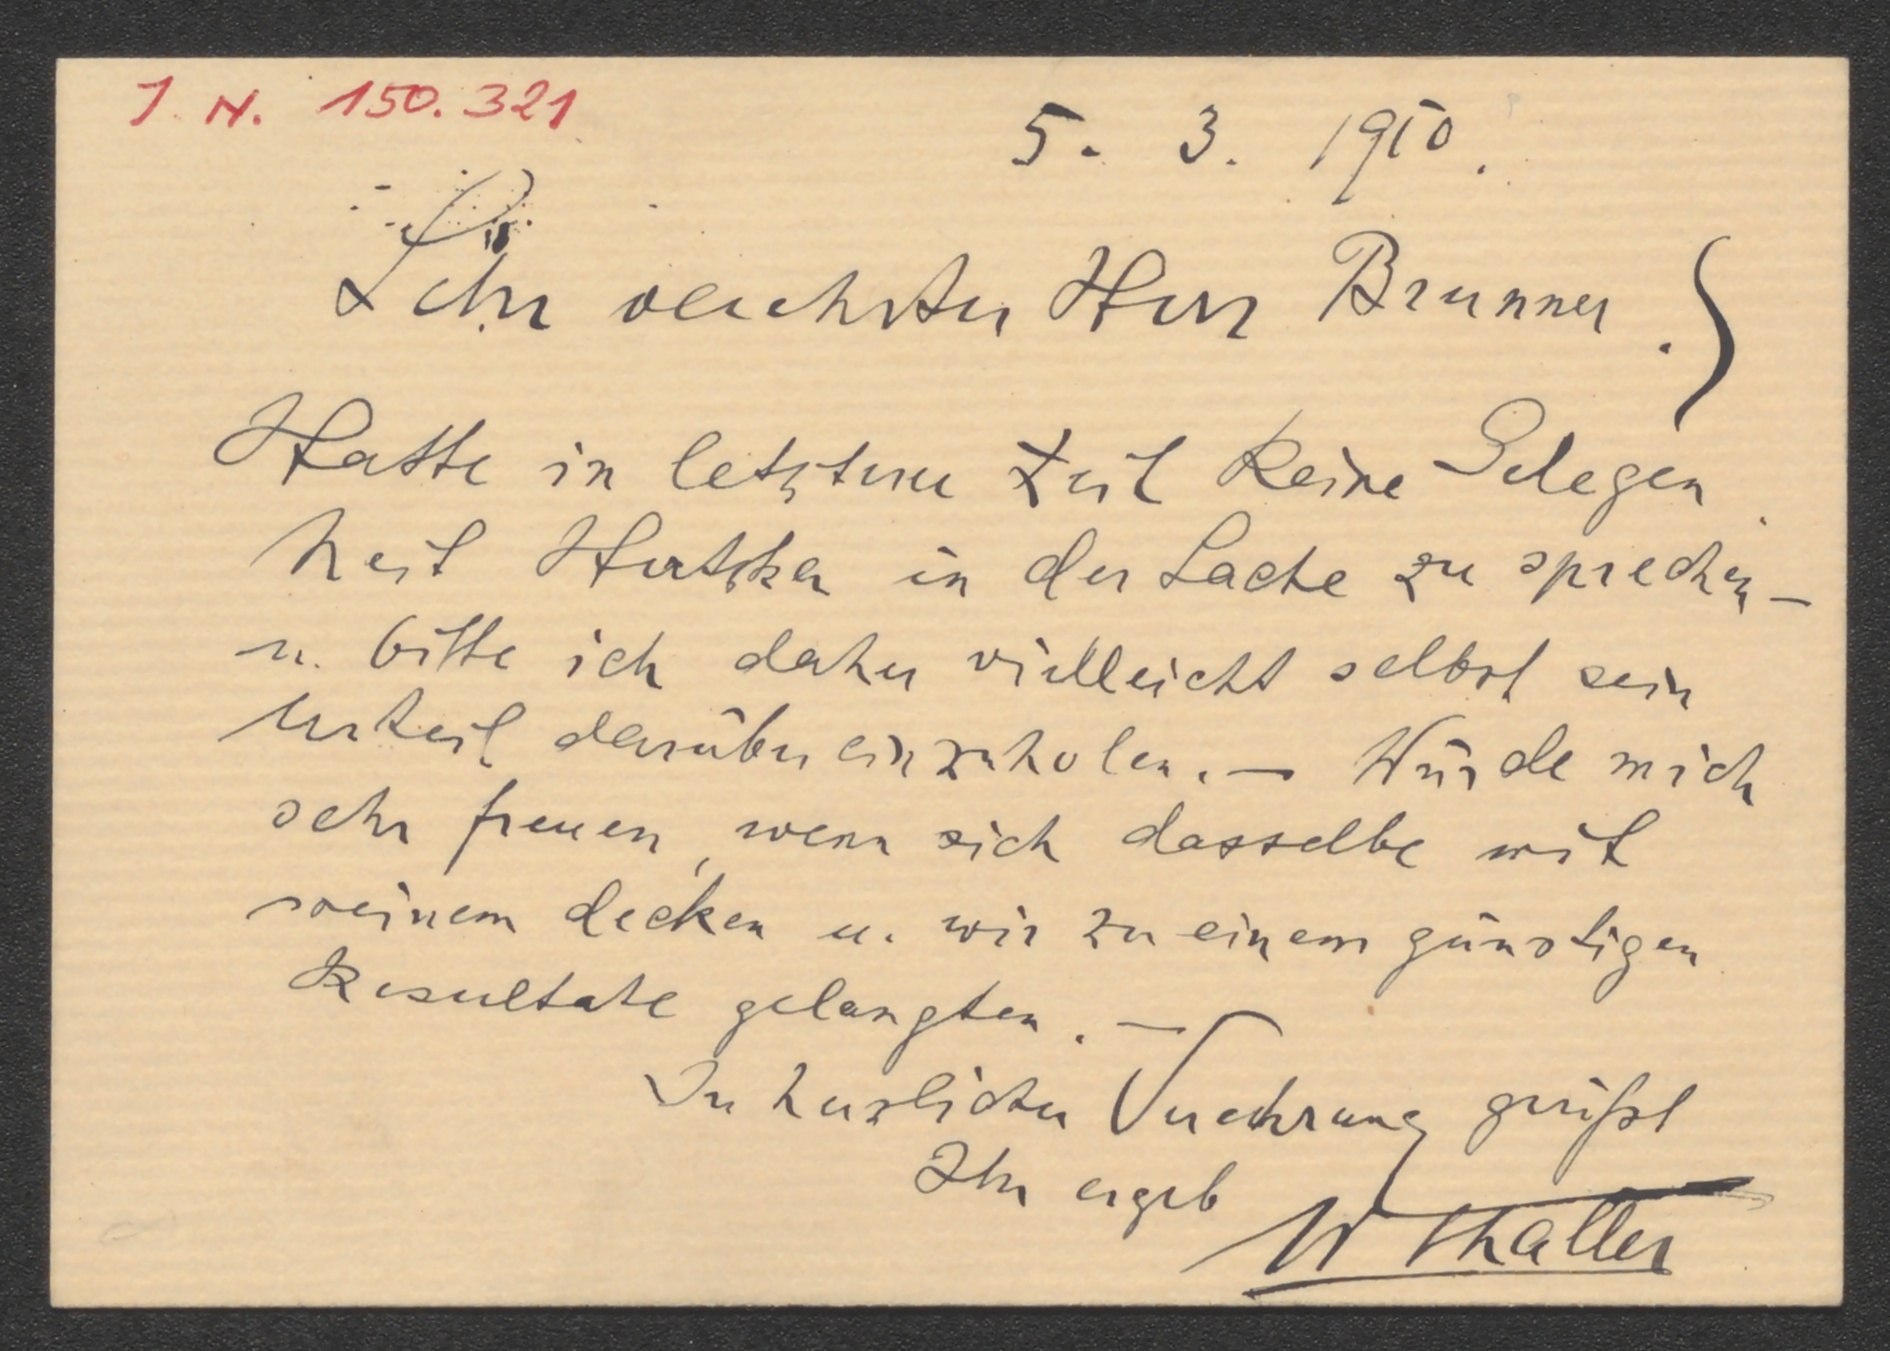 J. N. 150.321
5. 3. 1910.
Sehr verehrter Herr Brunner.
Hatte in letzterer Zeit keine Gelegen
heit Hertzka in der Sache zu sprechen –
u. bitte ich daher vielleicht selbst sein
Urteil darüber einzuholen. – Würde mich
sehr freuen, wenn sich dasselbe mit
meinem decken u. wir zu einem günstigen
Resultate gelangten. –
In herzlicher Verehrung grüßt
Ihr ergeb
W Thaller